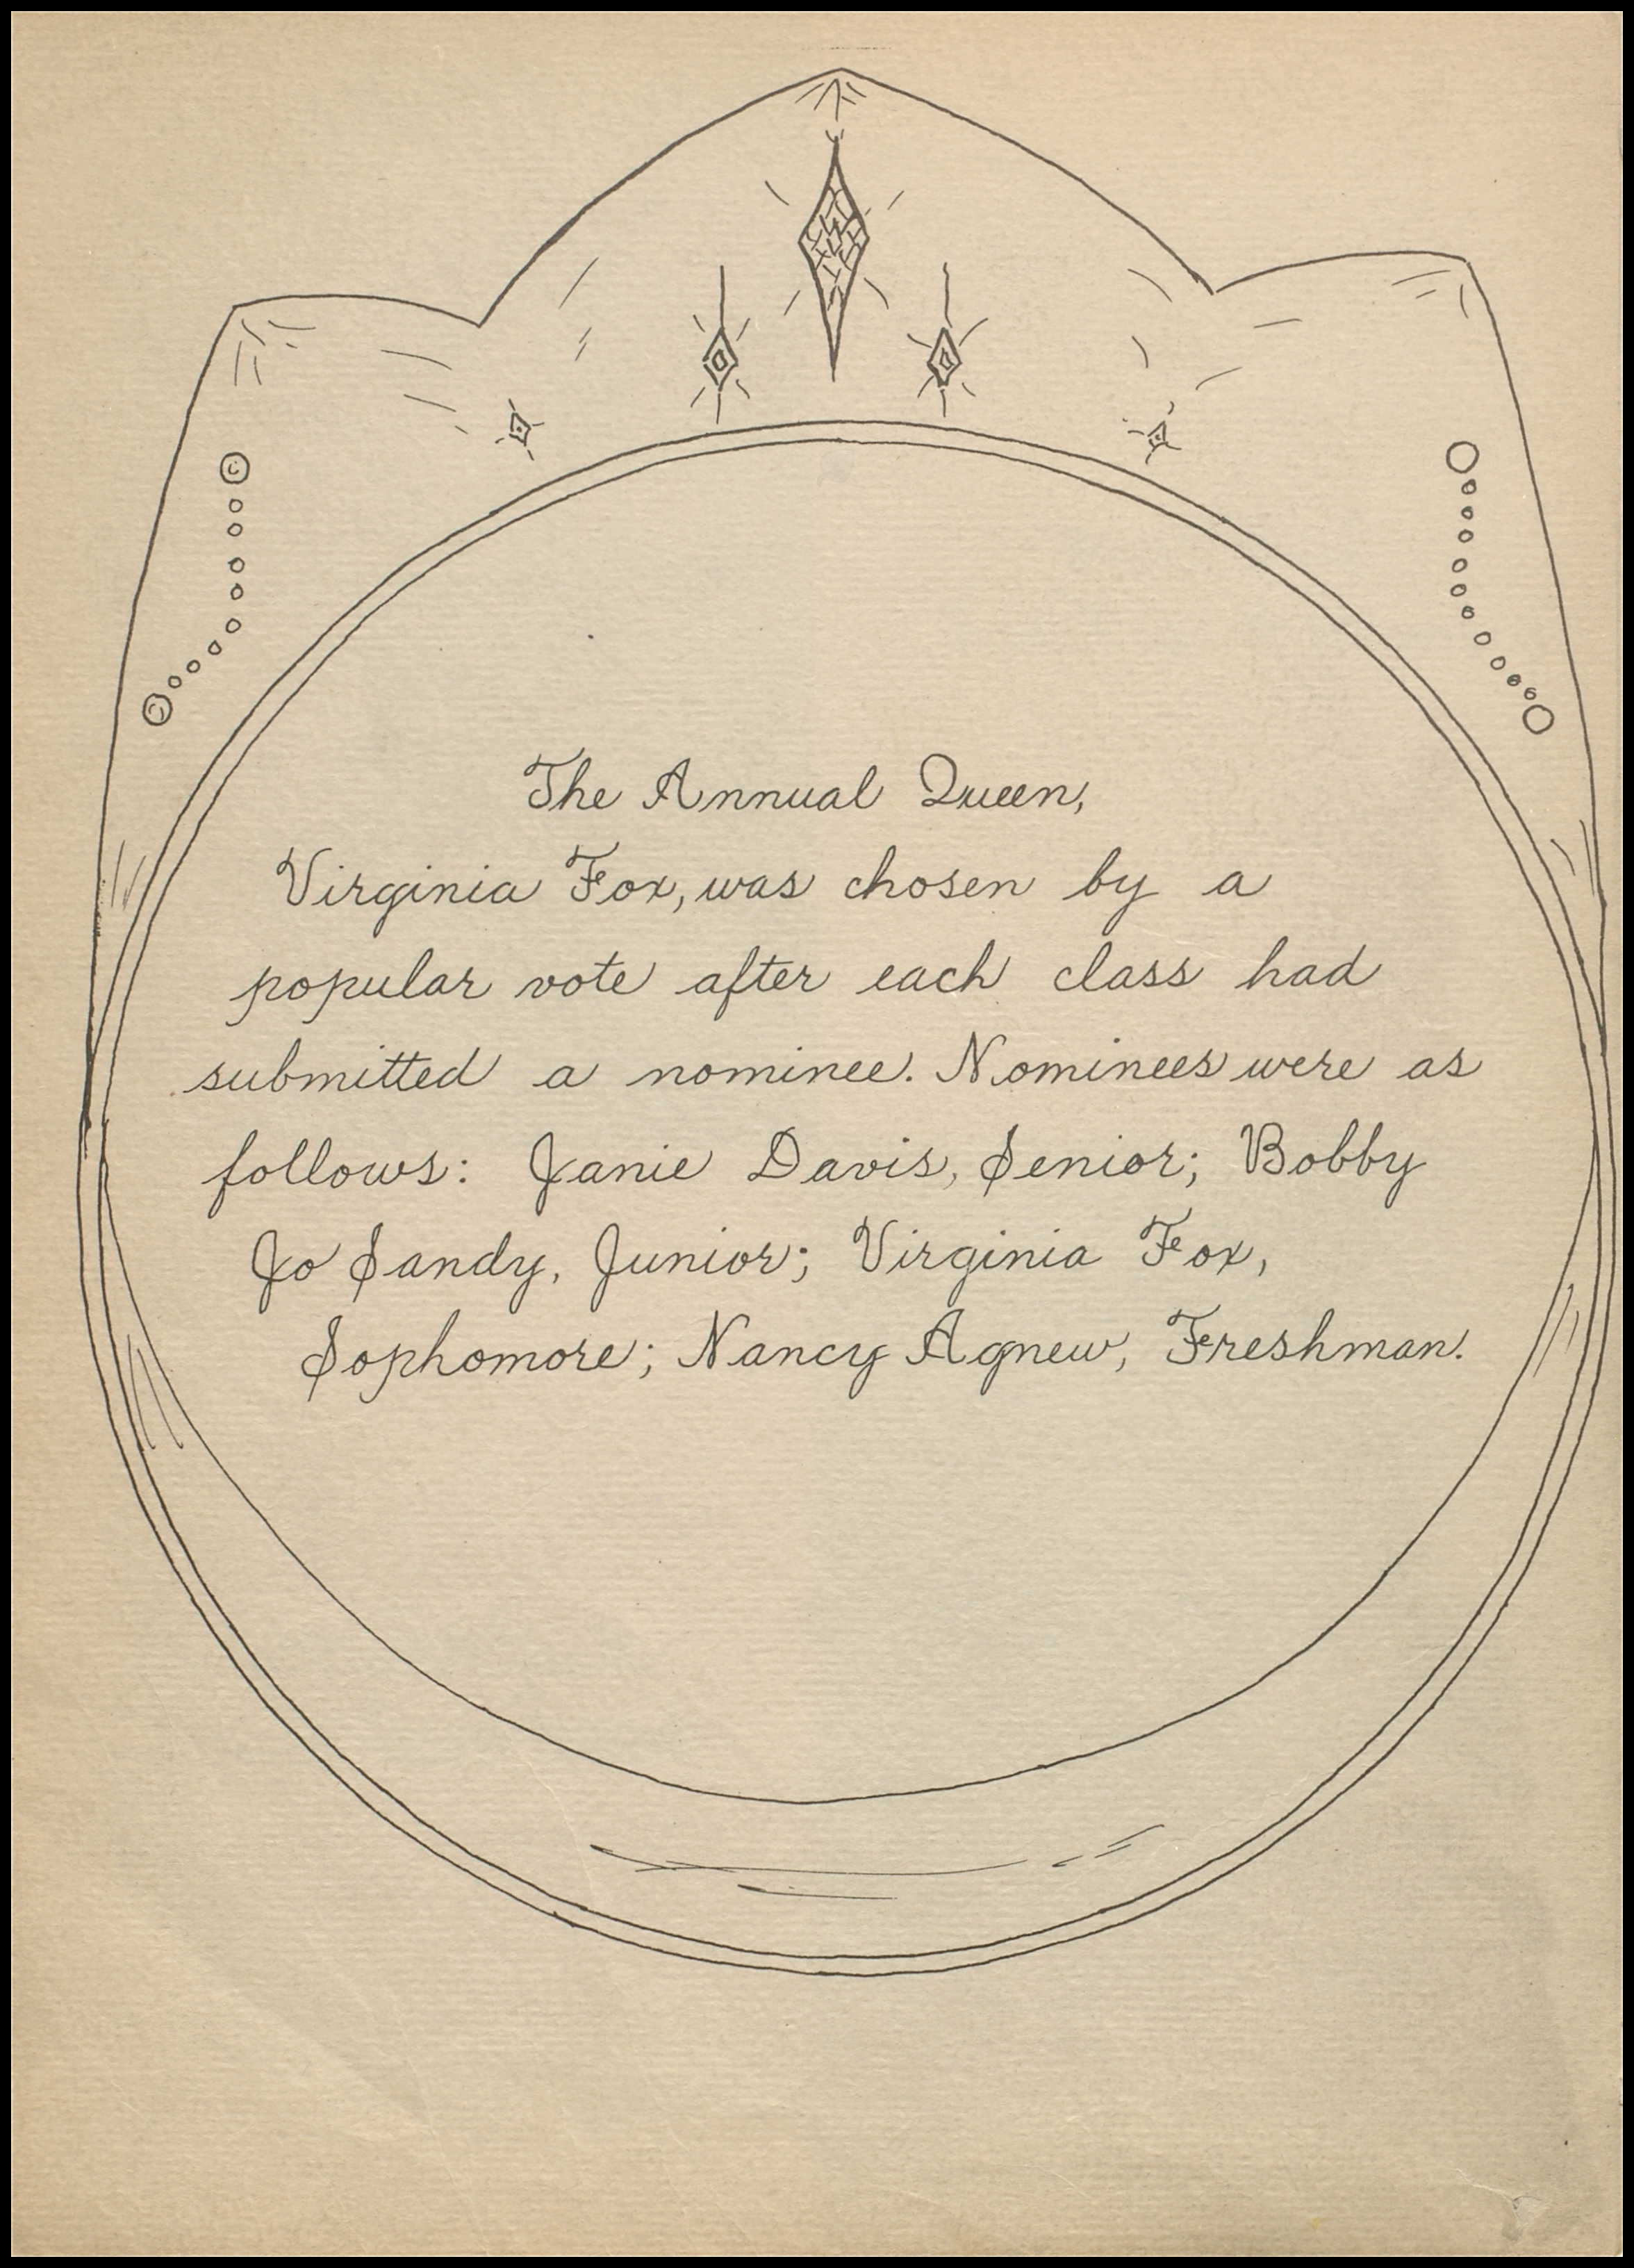 The Annual Queen,
Virginia Fox, was chosen by a
popular vote after each class had
submitted a nominee. Nominees were as
follows: Janie Davis, Senior; Bobby
Jo Sandy, Junior; Virginia Fox,
Sophomore; Nancy Agnew, Freshman.